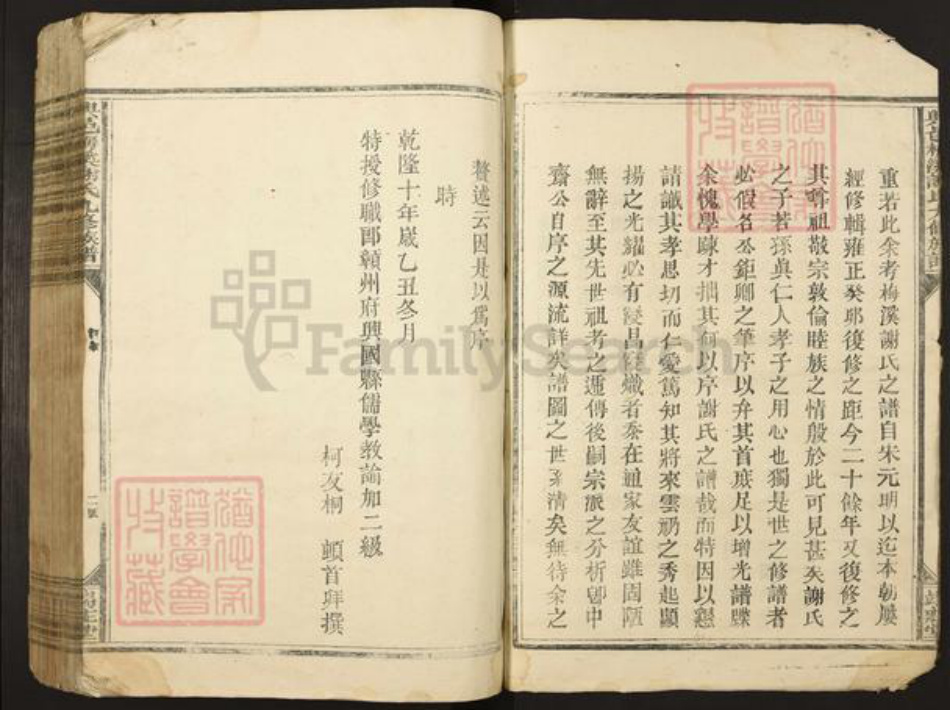 重若此余考梅溪謝氏之譜自宋元明以迄本朝屢
經修輯雍正癸卯復修之距今二十餘年又復修之
其尊祖敬宗敦倫睦族之情殷於此可見甚矣謝氏
之子若孫眞仁人孝子之用心也獨是世之修譜者
必假名公鉅卿之筆序以弁其首庶足以增光譜牒
余愧學疎才拙其何以序謝氏之譜哉而特因以懇
請議其孝思切而仁愛篤知其將來雲礽之秀起顯
揚之光耀必有發昌熾者忝在通家友誼雖固陋
無辭至其先世祖考之遞傳後嗣宗派之分析卽中
齋公自序之源流詳矣譜圖之世系清矣無待余之
贅述云因是以爲序
時
乾隆十年歲乙丑冬月
特授修職郎贛州府興國縣儒學教諭加二級
柯友桐 頓首拜撰
二號
FamilySearch
譜學會
收藏
譜學會
收藏